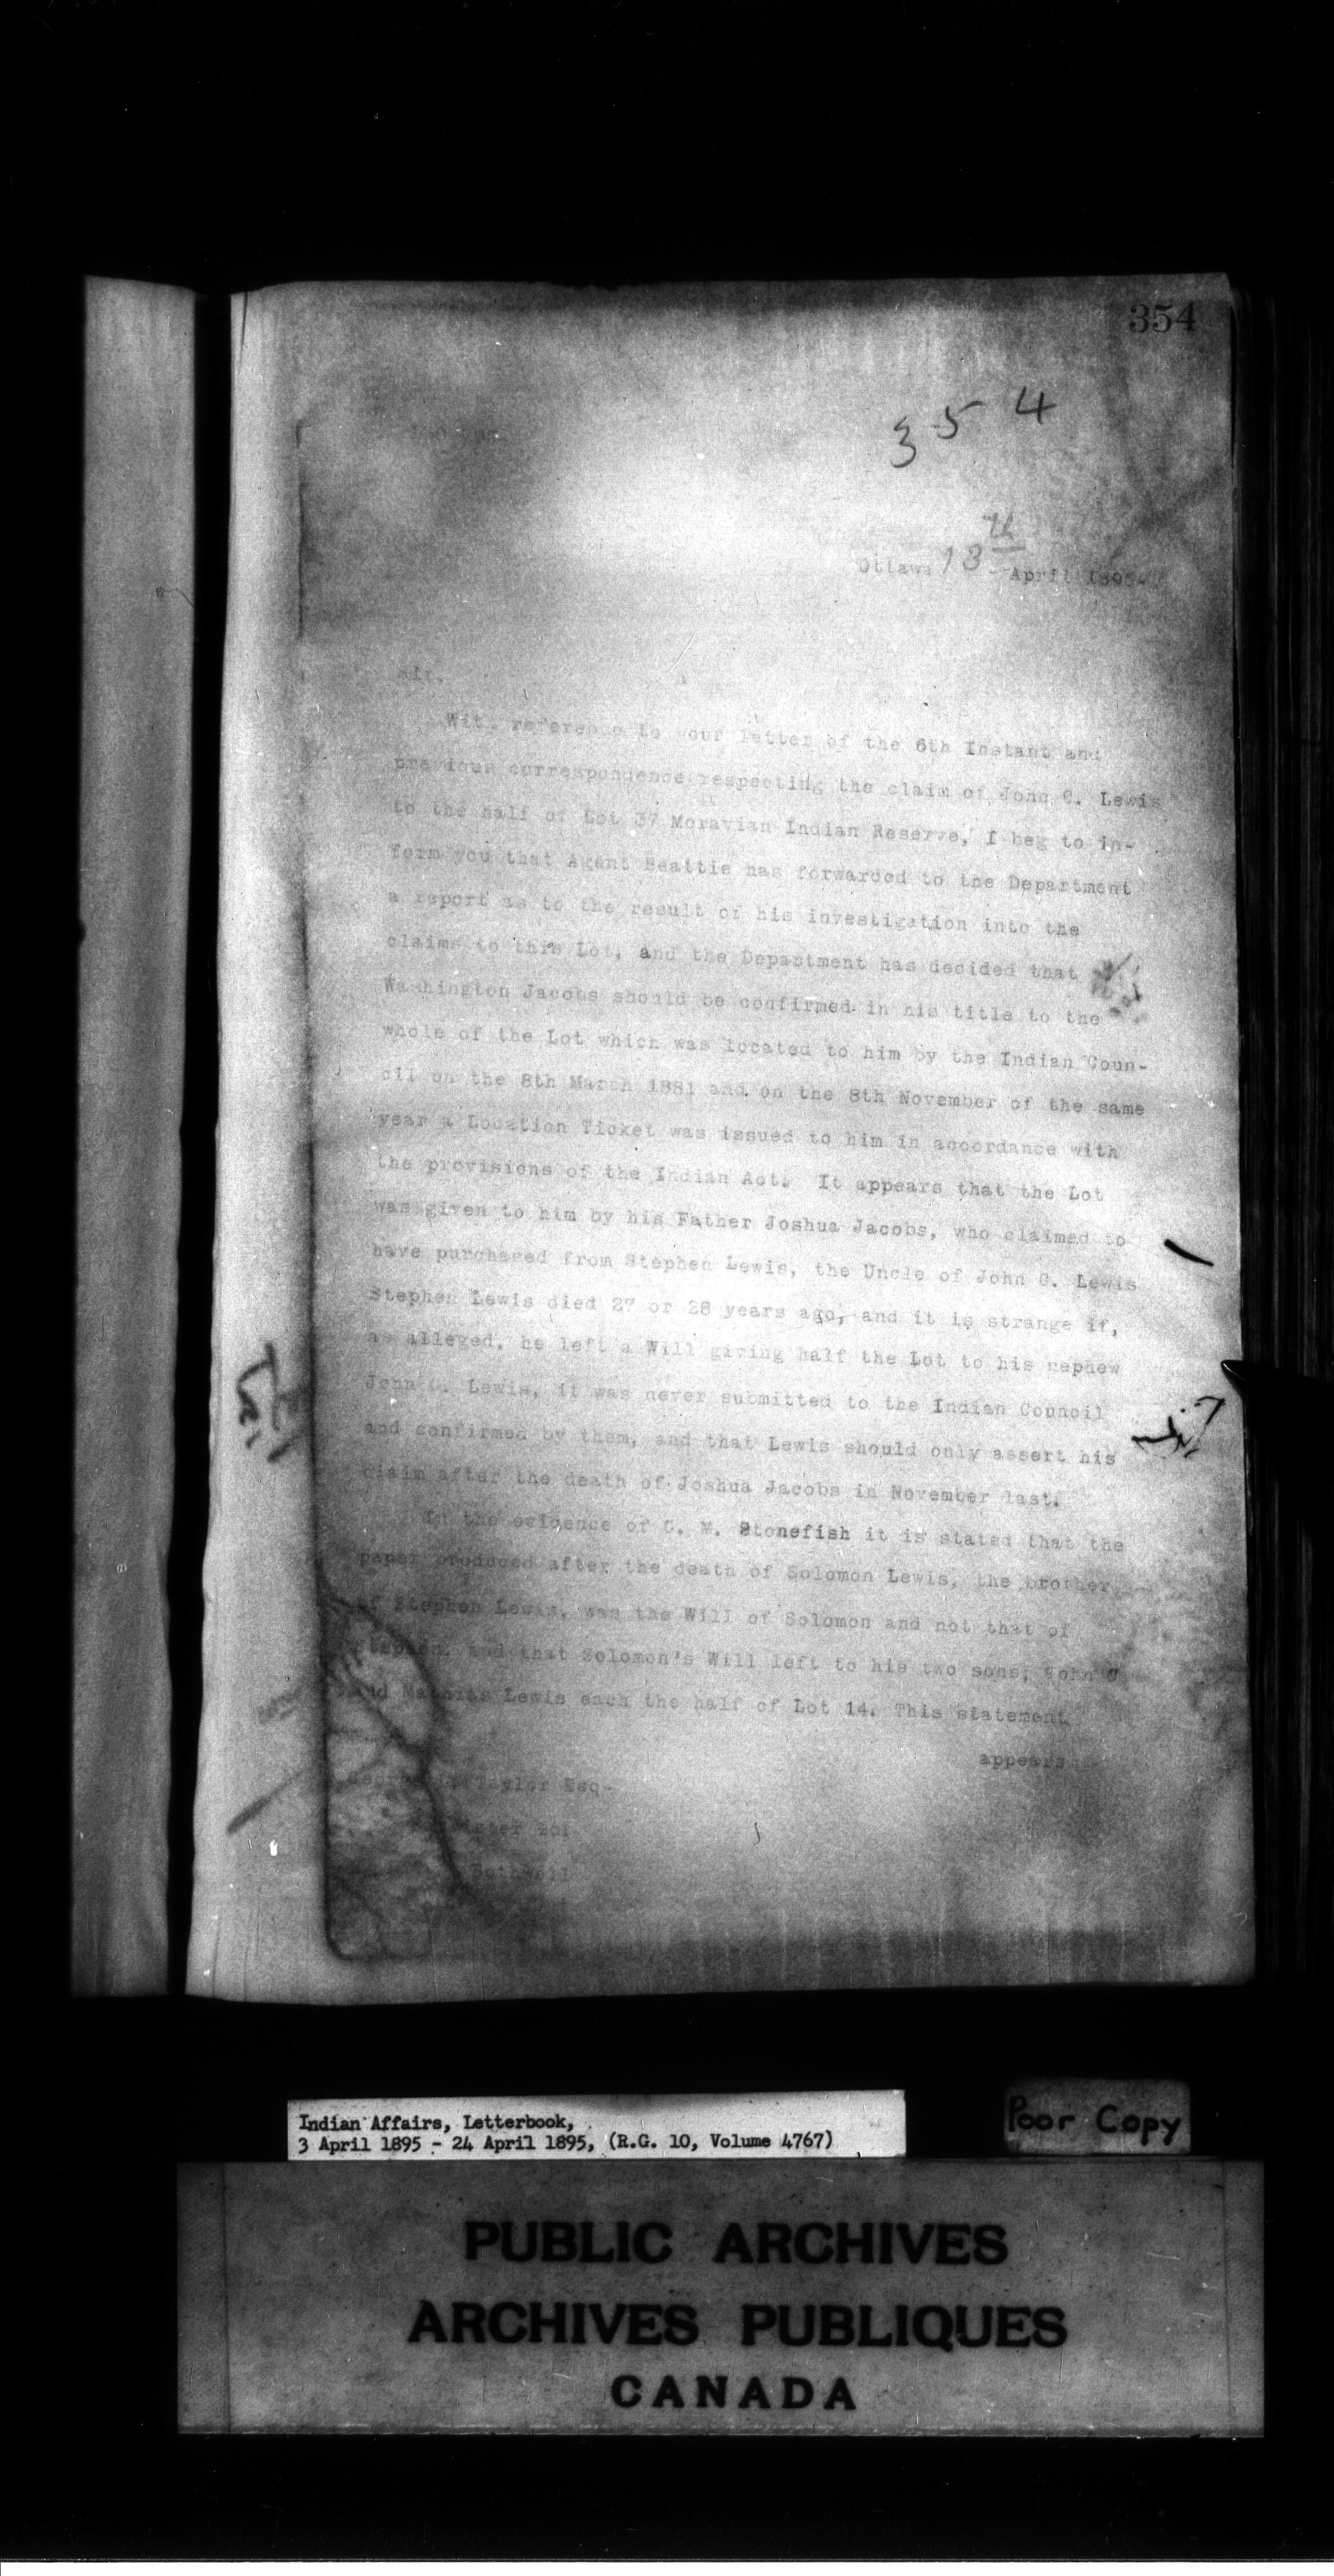 354
354
Ottawa 13th April 1895.
Sir,
With reference to your letter of the 6th Instant and
previous correspondence respecting the claim of John C. Lewis
to the half of Lot 37 Moravian Indian Reserve, I beg to in-
form you that Agent Beattie has forwarded to the Department
a report as to the result of his investigation into the
claims to this Lot, and the Department has decided that
Washington Jacobs should be confirmed in his title to the
whole of the Lot which was located to him by the Indian Coun-
cil on the 8th March 1881 and on the 8th November of the same
year a Location Ticket was issued to him in accordance with
the provisions of the Indian Act. It appears that the Lot
was given to him by his Father Joshua Jacobs, who claimed to
have purchased from Stephen Lewis, the Uncle of John C. Lewis
Stephen Lewis died 27 or 28 years ago, and it is strange if,
as alleged, he left a Will giving half the Lot to his nephew
John C. Lewis, it was never submitted to the Indian Council
and confirmed by them, and that Lewis should only assert his
claim after the death of Joshua Jacobs in November last.
In the evidence of C. M. Stonefish it is stated that the
paper produced after the death of Solomon Lewis, the brother
of Stephen Lewis, was the Will of Solomon and not that of
Stephen, and that Solomon's Will left to his two sons, John C
and Lewis each the half of Lot 14. This statement
appears
Taylor Esq.
Bothwell
Indian Affairs, Letterbook,
3 April 1895 - 24 April 1895, (R.G. 10, Volume 4767)
Poor Copy
PUBLIC ARCHIVES
ARCHIVES PUBLIQUES
CANADA